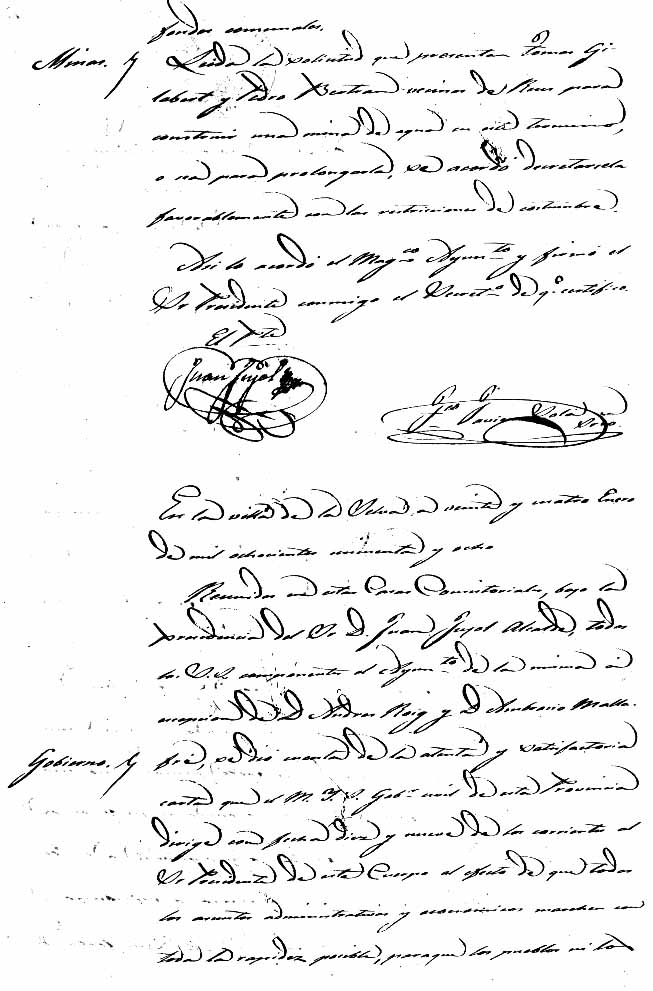 fondos comunales.
Minas. Leida la solicitud que presentan Tomas Gi-
labert y Pedro Bertran vecinos de Reus para
construir una mina de agua en este termino,
o sea para prolongarla, se acordó decretarsela
favorablemente con las restricciones de costumbre.
Asi lo acordó el Mag.co Ayun.to y firmó el
Sr Presidente conmigo el Secret.o de q.e certifico.
El P.te
Juan Jujol
Fco. Javier Sala
Srio
En la villa de la Selva a veinte y cuatro Enero
de mil ochocientos cincuenta y ocho
Reunidos en estas Casas Consistoriales, bajo la
presidencia del Sr. D. Juan Jujol Alcalde, todos
los S.S. componentes el Ayun.to de la misma á
excepcion de D. Andres Roig y D. Ambrosio Malla-
Gobierno. fré, se dió cuenta de la atenta y satisfactoria
carta que el M. I. S. Gob.r civil de esta Provincia
dirige con fecha diez y nueve de los corrientes al
Sr Presidente de este Cuerpo al efecto de que todos
los asuntos administrativos y economicos marchen con
toda la rapidez posible, para que los pueblos ni los